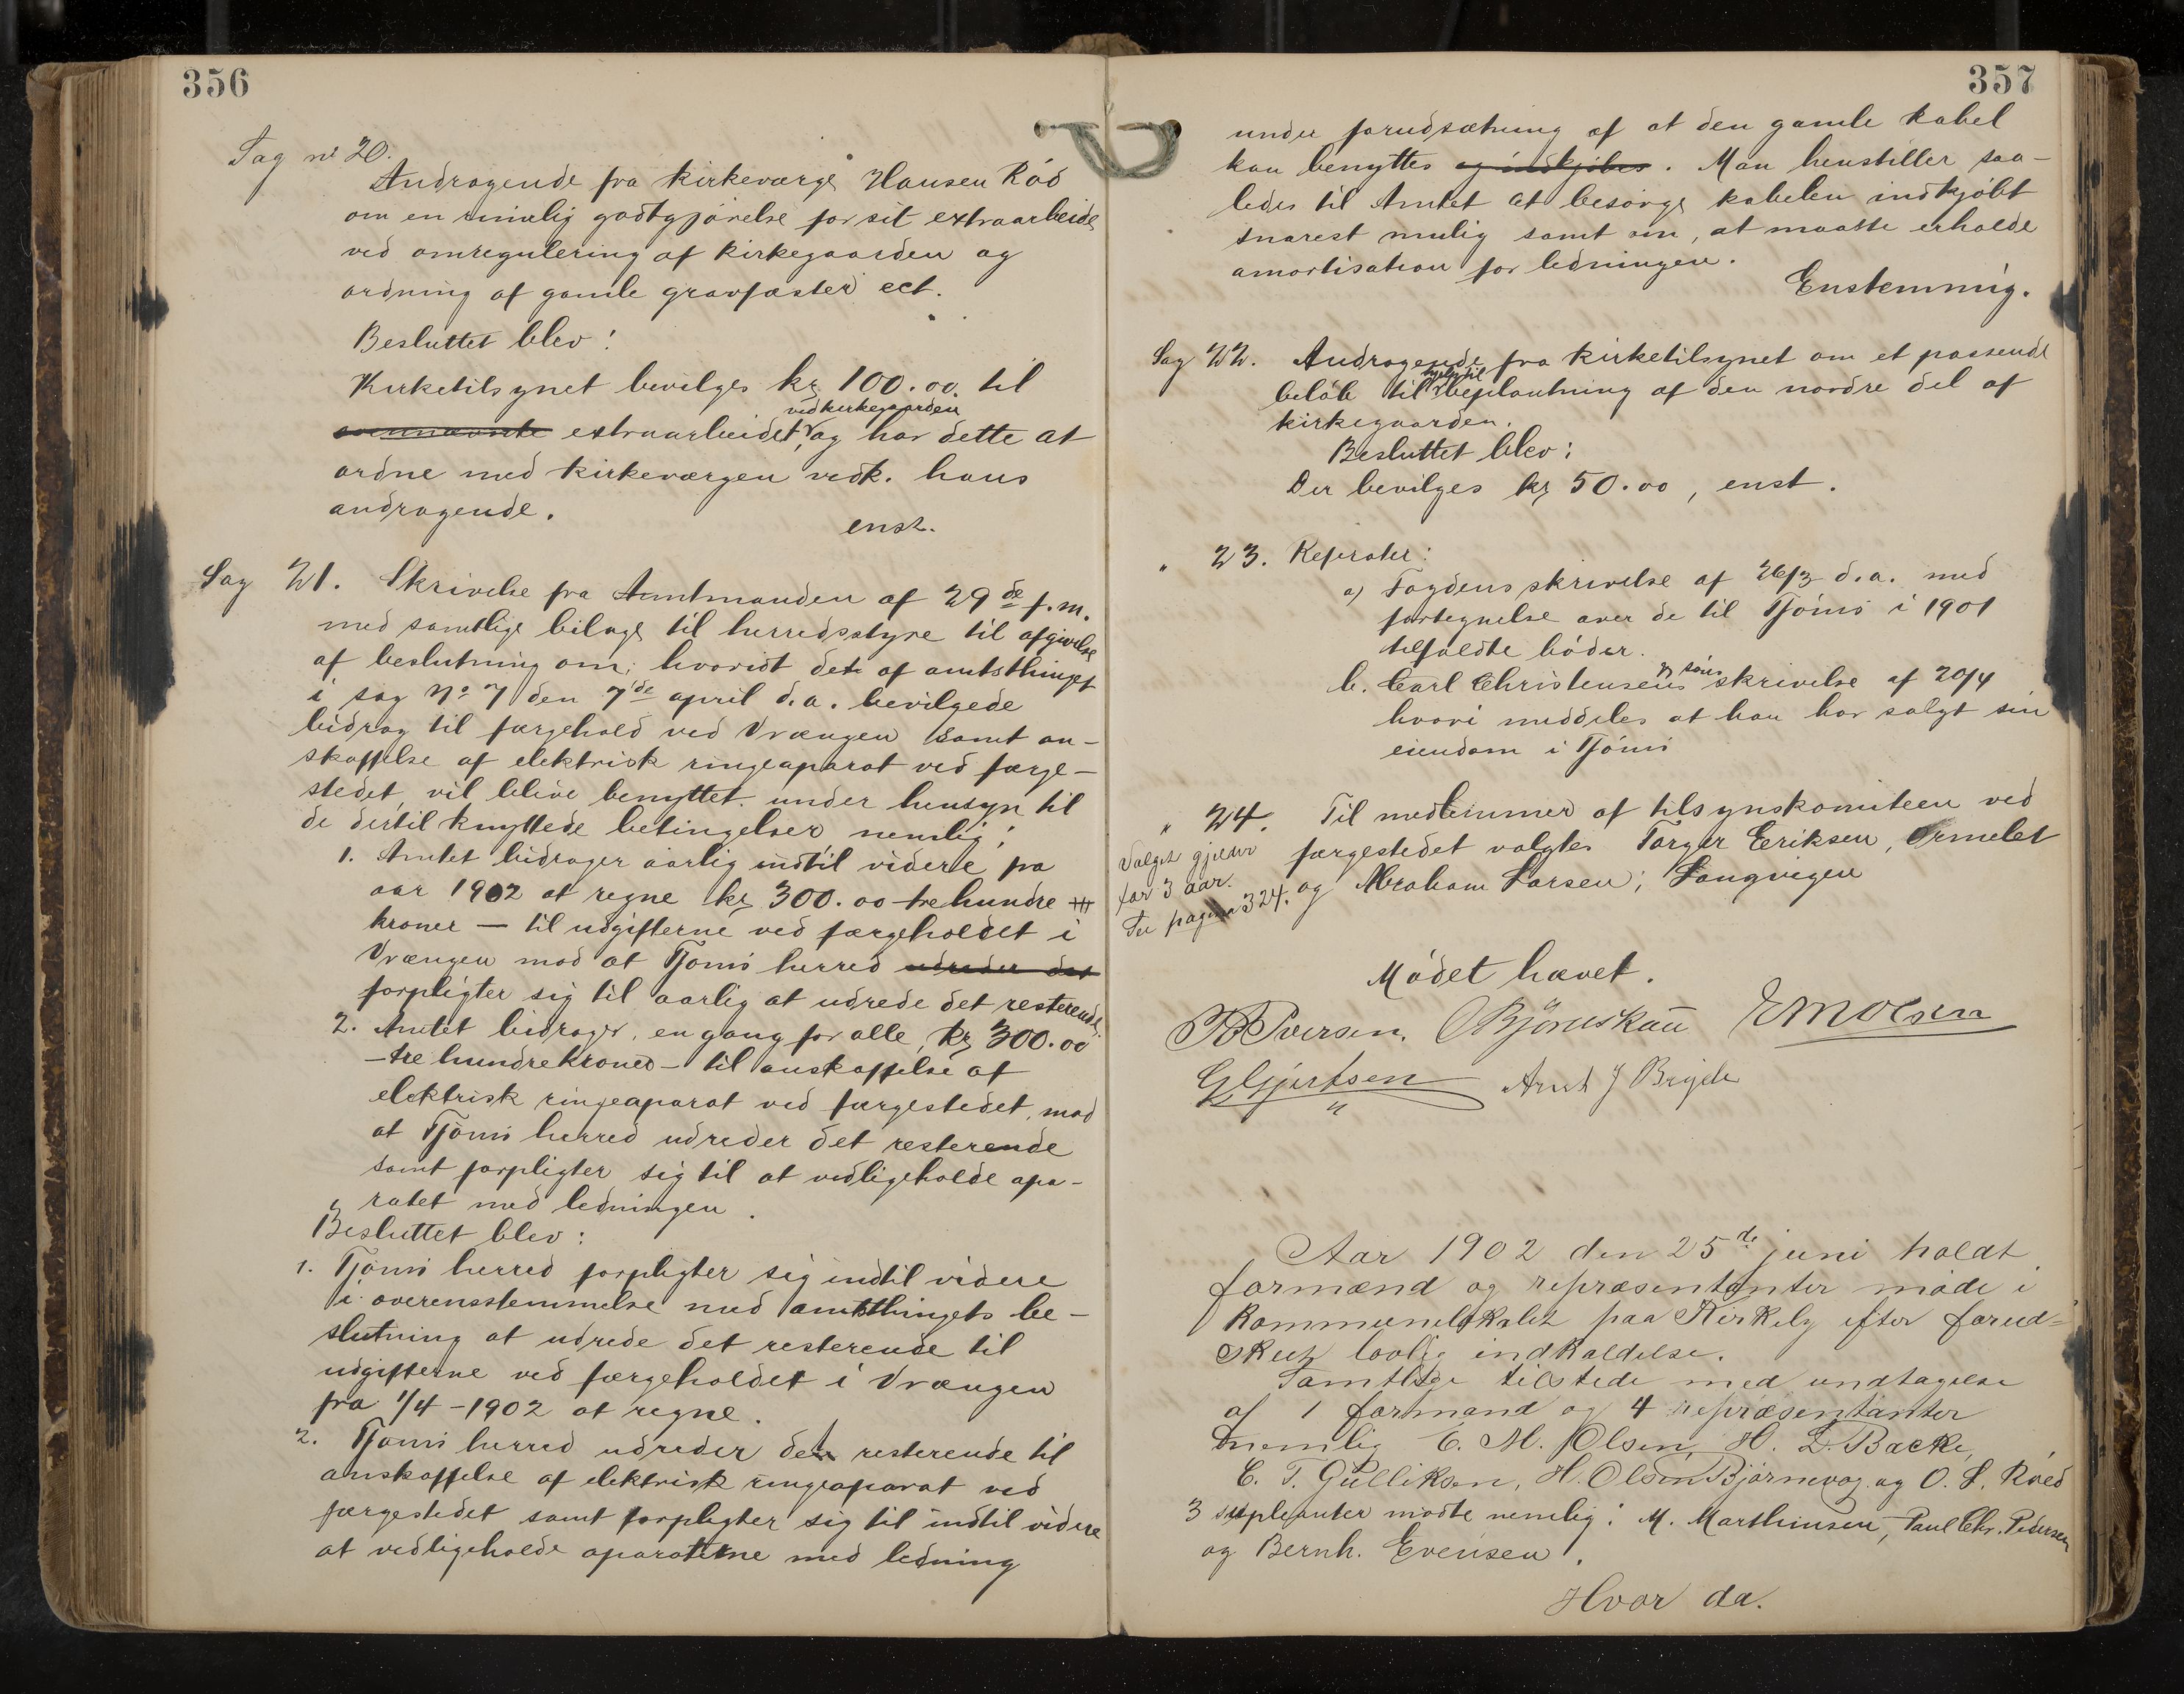 356
Sag nº 20.
Andragende fra kirkeværge Hansen Röd
om en rimelig godtgjörelse for sit extraarbeide
ved omregulering af kirkegaarden og
ordning af gamle gravfæster ect.
Besluttet blev:
Kirketilsynet bevilges kr 100.00 til
ved kirkegaarden
extraarbeidet, og har dette at
ordne med kirkeværgen vedk. hans
andragende.
enst.
Sag 21. Skrivelse fra Amtmanden af 29de f.m.
med samtlige bilage til herredsstyre til afgivelse
af beslutning om: hvorvidt det af amtsthinget
i sag No 7 den 7de april d.a. bevilgede
bidrag til færgehold ved Vrængen samt an-
skaffelse af elektrisk ringeaparat ved færge-
stedet, vil blive benyttet under hensyn til
de dertil knyttede betingelser nemlig:
1. Amtet bidrager aarlig indtil videre fra
aar 1902 at regne kr 300.00 trehundre
kroner — til udgifterne ved færgeholdet i
Vrængen mod at Tjömö herred udreder det
forpligter sig til aarlig at udrede det resterende
2. Amtet bidrager, en gang for alle, kr 300.00
- tre hundrekroner - til anskaffelse af
elektrisk ringeaparat ved færgestedet, mod
at Tjömö herred udreder det resterende
samt forpligter sig til at vedligeholde apa-
ratet med ledningen.
Besluttet blev:
1. Tjömö herred forpligter sig indtil videre
i overensstemmelse med amtsthingets be-
slutning at udrede det resterende til
udgifterne ved færgeholdet i Vrængen
fra 1/4 - 1902 at regne.
2. Tjömö herred udreder det resterende til
anskaffelse af elektrisk ringeaparat ved
færgestedet samt forpligter sig til indtil videre
at vedligeholde aparaterne med ledning
357
under forudsætning af at den gamle kabel
kan benyttes og indkjöbes. Man henstiller saa-
ledes til Amtet at besörge kabelen indkjöbt
snarest mulig samt om, at maatte erholde
amortisation for ledningen.
Enstemmig.
Sag 22. Andragende fra kirketilsynet om et passende
hjelp til
belöb til beplantning af den nordre del af
kirkegaarden.
Besluttet blev:
Der bevilges kr 50.00, enst.
" 23. Referater:
a) Fogdens skrivelse af 26/3 d.a. med
fortegnelse over de til Tjömö i 1901
tilfaldte böder.
b. Carl Christensens & söns skrivelse af 20/4
hvori meddeles at han har solgt sin
eiendom i Tjömö
" 24. Til medlemmer af tilsynskomiteen ved
færgestedet valgtes Torger Eriksen, Ormelet
og Abraham Larsen, Langvigen
Valget gjelder
for 3 aar.
Se pagina 324.
Mödet hævet.
Iversen. OBjörnskau EMOlsen
GGjertsen Arnt J Bryde
Aar 1902 den 25de juni holdt
formænd og repræsentanter möde i
Kommunelokalet paa Kirkely efter forud-
skeet lovlig indkaldelse.
Samtlige tilstede med undtagelse
af 1 formand og 4 repræsentanter
nemlig E. M. Olsen, H. L. Backe,
C. T. Gulliksen, H. Olsen Bjørnevag og O. L. Røed
3 supleanter mødte nemlig: M. Marthinsen, Paul Chr. Pedersen
og Bernh. Evensen.
Hvor da.